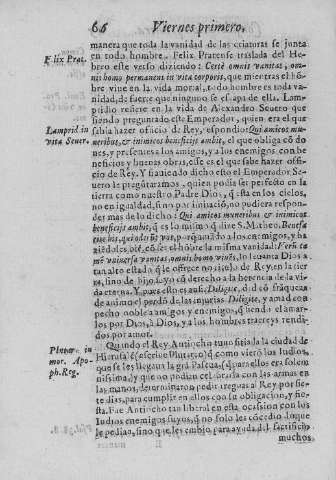 66 Viernes primero,
manera que toda la vanidad de las criaturas se junta
en todo hombre. Felix Pratense traslada del He-
Felix Prat.
breo este verso diziendo: Certè omnis vanitas, om-
nis homo permanens in vita corporis, que mientras el hō-
bre viue en la vida mortal, todo hombre es toda va-
nidad, de suerte que ninguno se escapa de ella. Lam-
pridio refiere en la vida de Alexandro Seuero que
siendo preguntado este Emperador, quien era el que
Lamprid. in
vita Seuer.
sabia hazer officio de Rey, respondio: Qui amicos mu-
neribus, & inimicos beneficijs ambit, el que obliga cō do
nes, y presentes a los amigos, y a los enemigos con be-
neficios y buenas obras, esse es el que sabe hazer offi-
cio de Rey. Y si quando dicho esto el Emperador Se-
uero le preguntaramos, quien podia ser perfecto en la
tierra como nuestro Padre Dios, q̃ esta en los cielos,
no en igualdad, sino por imitaciō, no pudiera respon-
der mas de lo dicho: Qui amicos muneribus & inimicos
beneficijs ambit, q̃ es lo mismo q̃ dize S. Matheo. Benefa
cite his, qui oderūt vos,
zi de el hōbre la misma vanidad: Verū ta
mē vniuersa vanitas, omnis homo viuēs, lo leuanta Dios a
tan alto estado q̃ le ofrece no titulo de Rey en la tier
ra, sino de hijo suyo cō derecho a la herencia de la vi-
da eterna. Y pues esto es assi: Diligite, di cō frāquezà
de animo el perdō de las injurias. Diligite, y amad con
pecho noble a amigos y enemigos, q̃ siendo el amar-
los por Dios, à Dios, y a los hombres traereys rendi-
dos por amor.
Quando el Rey Antiocho tuuo sitiada la ciudad de
Plutarc. in
mor. Apo-
ph. Reg.
Hierusa (escriue Plutarco) q̃ como vierō los Iudios,
que se les llegaua la grā Pascua, (q̃ para ellos era solem
nissima) y que no podian celebrarla con las armas en
las manos, determinaron pedir treguas al Rey por sie-
te dias, para cumplir en ellos con su obligacion, y fie-
sta. Fue Antiocho tan liberal en esta ocasion con los
Iudios enemigos suyos, q̃ no solo les cōcedio lo que
le pedian, sino que les embiò para ayuda del sacrificio
muchos